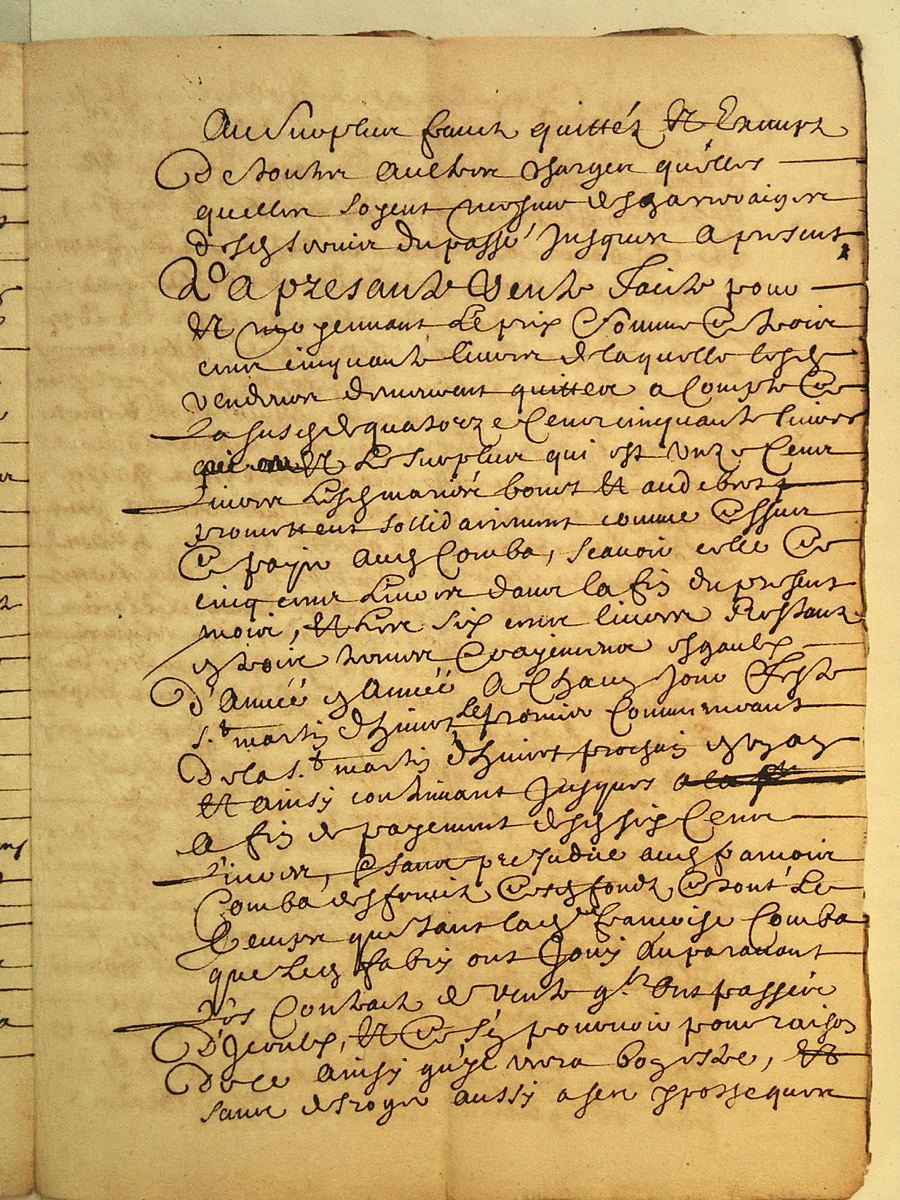 Au surplus francz quittéz Et Exempz
De toutes aultres charges quélles
quelles soyent mesme desd arreraiges
desd servis du passé Jusques a presant
La presante Vente Faite pour
Et moyennant Le prix Et somme de troix
cens cinquante livres de laquelle lesd
vendeurs demeurent quittes a Compte de
La susd de quatorze Cens cinquante livres
Et Le surplus qui est unze Cens
Livres Lesd mariés
promettent sollidairement comme dessus
de payer aud Comba, scavoir celle de
cinq cens Livres dans la fin du present
mois, Et Les six cens livres Restans
en troix termes payemens esgaulx
d'Année en Année A Chaun Jour Feste
s.t martin d'hivert Le premier Commencant
De la s.t martin d'hivert prochain
Et ainsy continuant Jusques
A fin de payement desd six Cens
Livres, Et sans prejudice aud francois
Comba des fruitz desd fondz de tout Le
temps que tant lad francoise Comba
que Led fabry ont Jouy auparavant
Les Contract de vente q.ls ont passés
D'Iceulx, Et de sẻ pourvoir pour raison
De ce Ainsy qu'yl verra bon estre, Et
sans desroger aussi a ses ypotheques